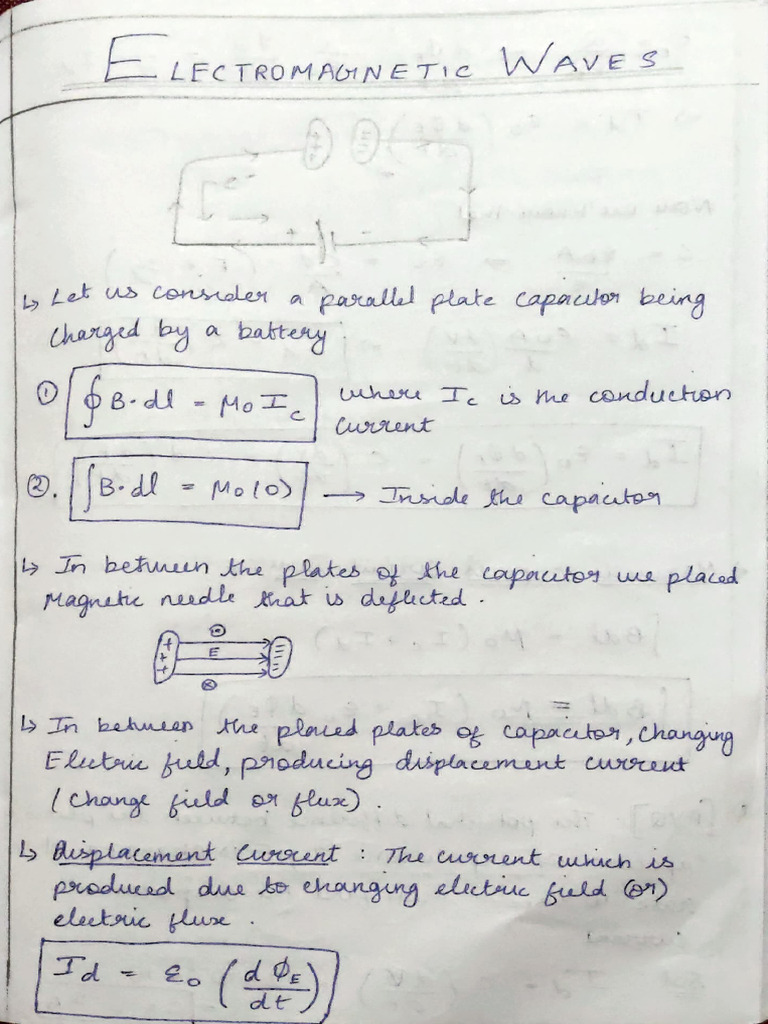 ELECTROMAGNETIC WAVES
+ + + - - -
+ -
↳ Let us consider a parallel plate capacitor being
charged by a battery.
① ∮B·dl = μ₀ I_c where I_c is the conduction
current
②. ∫B·dl = μ₀(0) → Inside the capacitor
↳ In between the plates of the capacitor we placed
Magnetic needle that is deflected.
⊙
+ + + E - - -
⊗
↳ In between the placed plates of capacitor, changing
Electric field, producing displacement current
(change field or flux).
↳ Displacement Current : The current which is
produced due to changing electric field (or)
electric flux.
I_d = ε₀ (dϕ_E/dt)